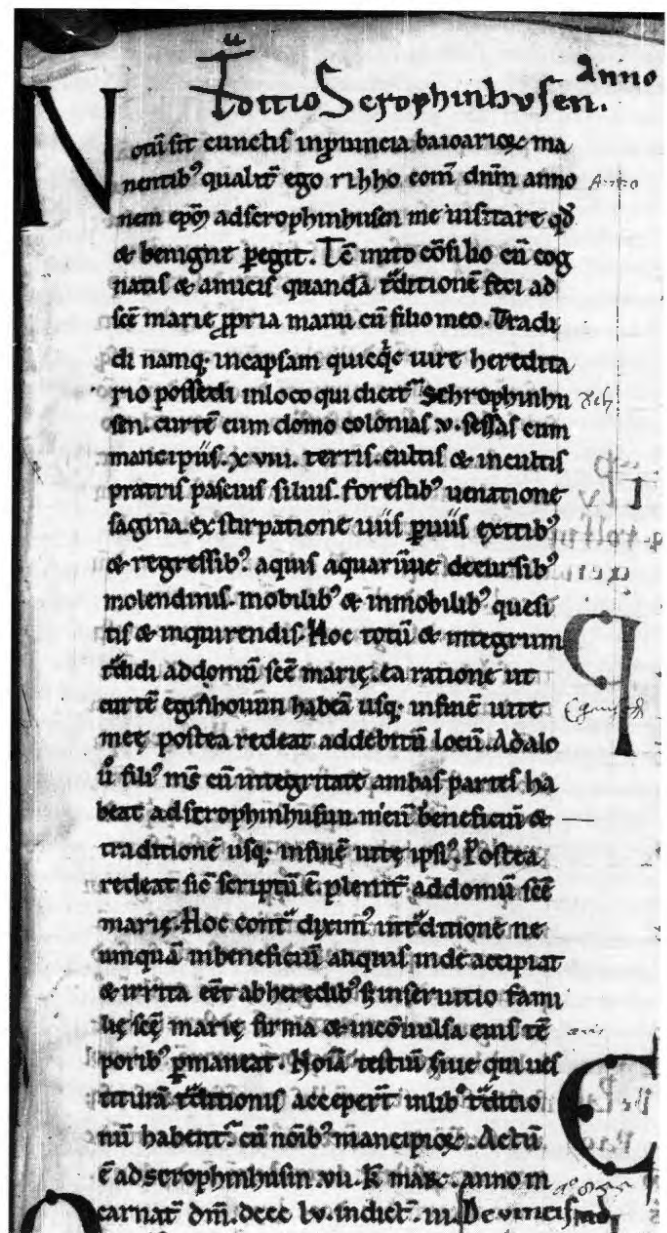 Anno
Tᷓditio Scrophinhusen.
Notū sit cunctis inp̱uincia baioarioꝝ ma
nentibꝰ qualit̄ ego rihho comī dnm̄ anno
nem ep̄m adscrophinhusen me uisitare qđ
& benigne p̱egit. Tc̄ inito cōsilio cū cog
natis & amicis quandā tᷓditionē feci ad
sc̄e marię ꝓpria manu cū filio meo. Tradi
di namq; incapsam quicqͥd iure heredita
rio possedi inloco qui dicit᷑ Schrophinhu
sen. curtē cum domo colonias .v. sessas cum
mancipiis .xviii. terris. cultis & incultis
pratris pascuis siluis. forestibꝰ uenatione
sagina. exstirpatione uiis ꝑuiis exitibꝰ
& regressibꝰ. aquis aquarūue decursibꝰ
molendinis. mobilibꝰ & inmobilibꝰ quesi
tis & inquirendis. Hoc totū & integrum
tᷓdidi addomū sc̄e marię. ea ratione ut
curtē eginhouun habeā usq; infinē uite
meę postea redeat addebitū locū. Adalo
ū filiꝰ ms̄ cū integritate ambas partes ha
beat adscrophinhusun. meū beneficiū &
traditionē usq; infinē uitę ipsiꝰ. Postea
redeat sic̄ scriptū ē. plenit̄ addomū sc̄e
marię. Hoc cont᷑ diximꝰ intᷓditione ne
umquā inbeneficiū aliquis inde accipiat
& irrita eēt abheredibꝰ sꝫ inseruitio fami
lię sc̄e marię firma & incōuulsa euis tē
poribꝰ p̱maneat. Noīa testiū siue qui ues
titurā tᷓditionis acceper̄t inlibꝰ tᷓditio
nū habent᷑ cū nōibꝰ mancipioꝝ. Actū
ē adscrophinhusin .vii. k̄ marc. anno in
carnat̄ dnī. dccc lv. indict̄. iii. De uincis